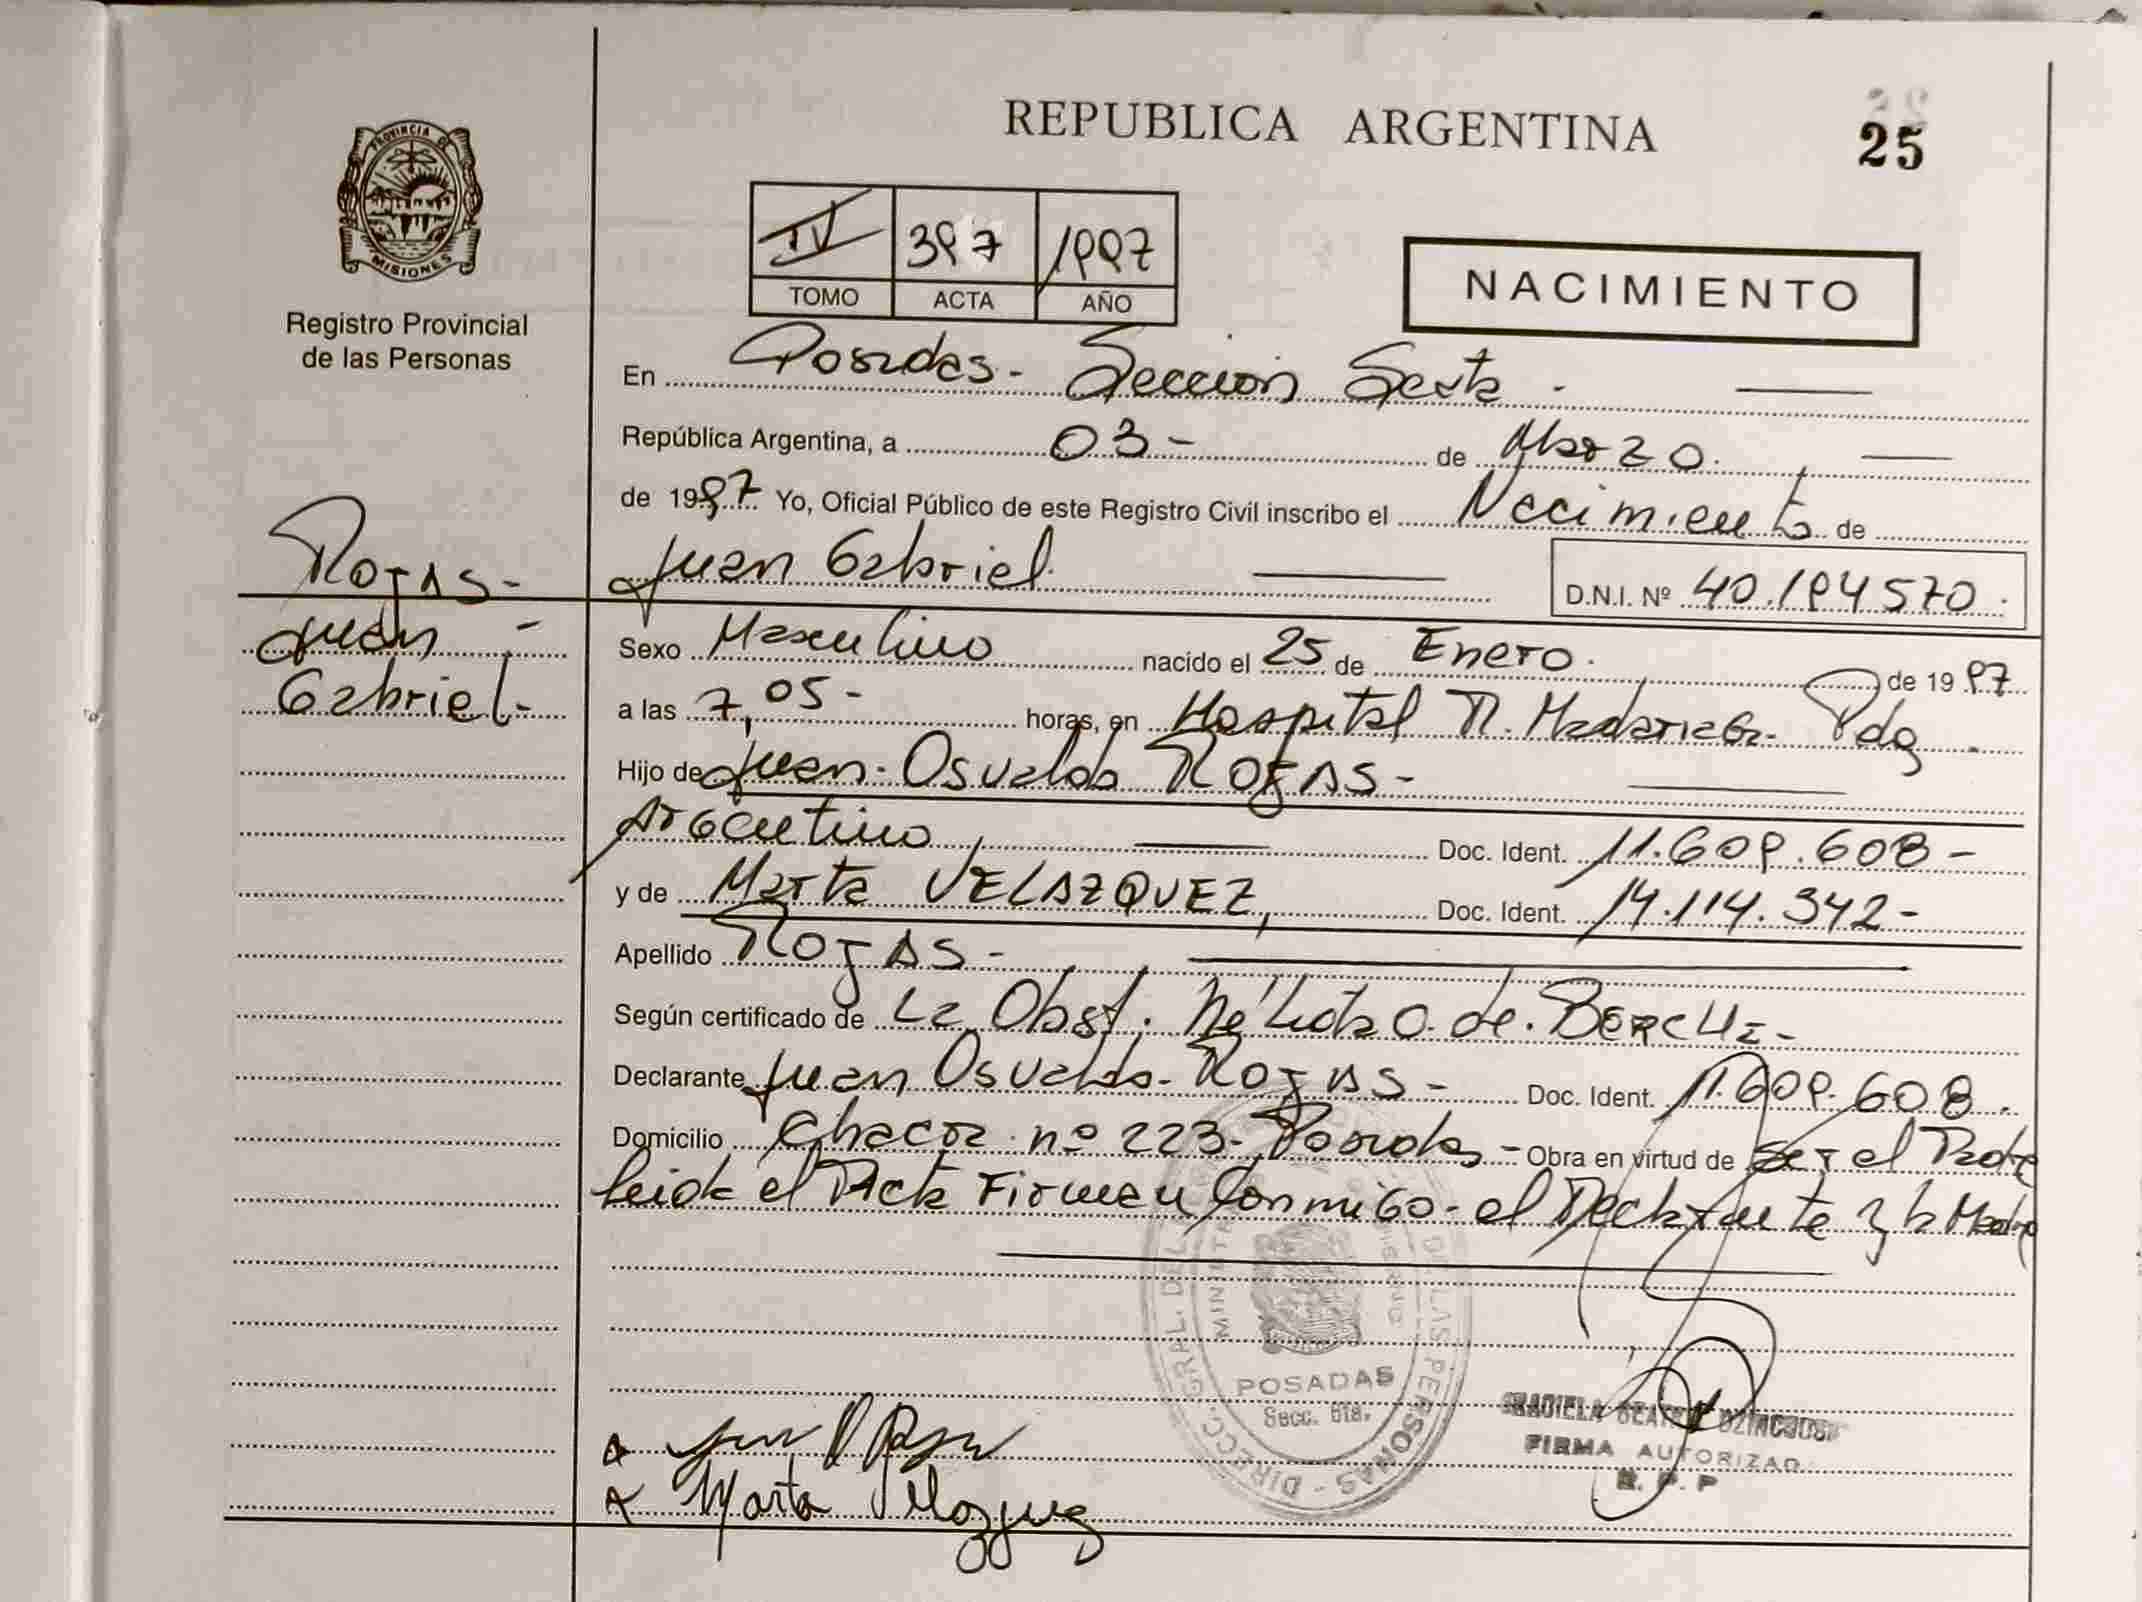 REPUBLICA ARGENTINA
25
PROVINCIA DE
MISIONES
Registro Provincial
de las Personas
IV 397 1997
TOMO ACTA AÑO
NACIMIENTO
En Posadas - Sección Sexta -
República Argentina, a 03 - de Marzo.
de 1997 Yo, Oficial Público de este Registro Civil inscribo el Nacimiento de
Juan Gabriel
D.N.I. Nº 40.194570.
ROJAS -
Juan -
Gabriel -
Sexo Masculino nacido el 25 de Enero. de 1997
a las 7,05 - horas, en Hospital R. Madariaga - Pdas
Hijo de Juan - Osvaldo ROJAS -
Argentino Doc. Ident. 11.609.608 -
y de Marta VELAZQUEZ, Doc. Ident. 14.114.342 -
Apellido ROJAS -
Según certificado de La Obst. Nélida O. de
Declarante Juan Osvaldo - ROJAS - Doc. Ident. 11.609.608.
Domicilio Chacra nº 223 - Posadas - Obra en virtud de ser el Padre
leida el Acta Firman Conmigo - el Declarante y la Madre
DIRECC. GRAL. DEL DE LAS PERSONAS
POSADAS
Secc. 6ta.
Marta Velazquez
GRACIELA BEATRIZ
FIRMA AUTORIZAD
R. P. P